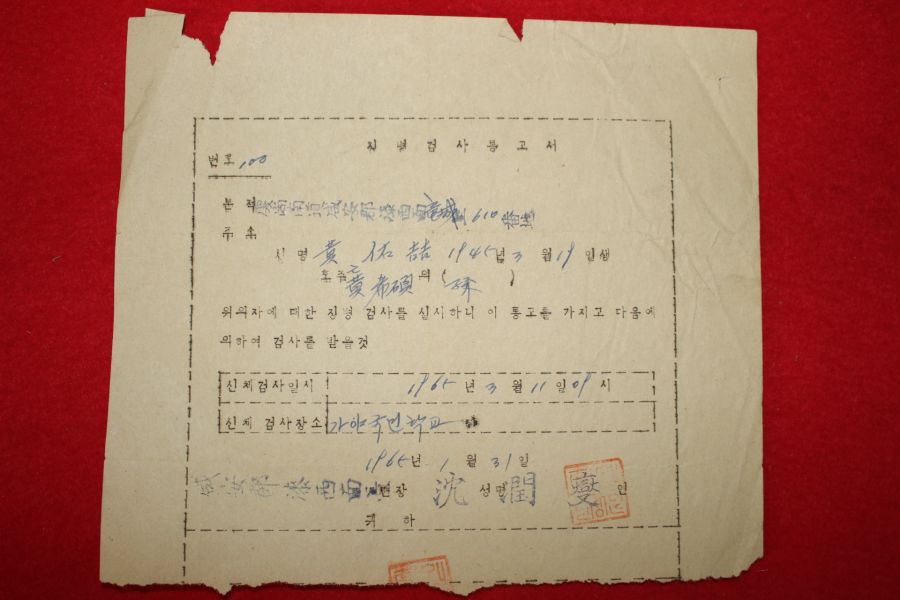 징병검사통고서
번호 100
본적 慶尚南道咸安郡漆西面 610 番地
주소
성명 黃佑喆 1945년 3월 19일생
호주 黃希碩의 (孫)
위의자에 대한 징병 검사를 실시하니 이 통고를 가지고 다음에
의하여 검사를 받을것
신체검사일시 1965년 3월 11일 09시
신체 검사장소 가야국민학교
1965년 1월 31일
咸安郡漆西面長 면장 성명 沈潤燮 인
귀하